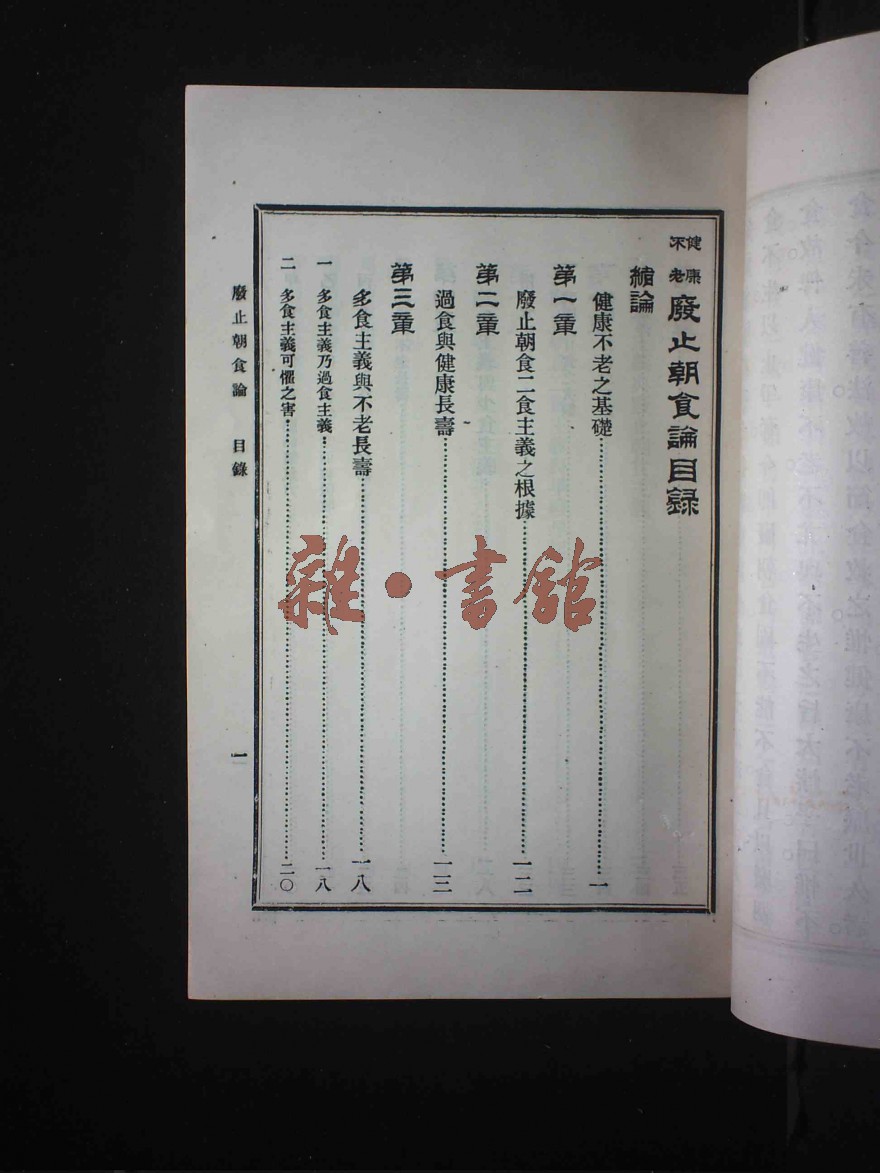 健康不老 廢止朝食論目錄
緒論
健康不老之基礎 一
第一章
廢止朝食二食主義之根據 一二
第二章
過食與健康長壽 一三
第三章
多食主義與不老長壽 一八
一 多食主義乃過食主義 一八
二 多食主義可懼之害 二〇
廢止朝食論 目錄 一
雜·書館